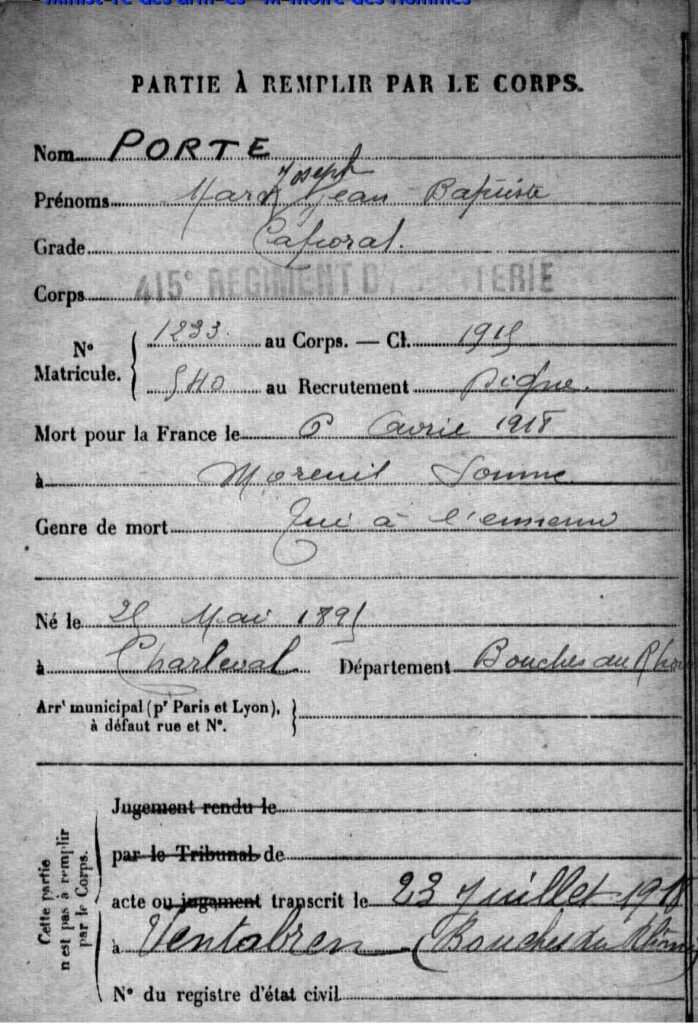 Ministère des armées - Mémoire des Hommes
PARTIE À REMPLIR PAR LE CORPS.
Nom PORTE
Joseph
Prénoms Marx Jean Baptiste
Grade Caporal.
Corps 415e REGIMENT D'INFANTERIE
No Matricule. { 1233 au Corps. — Cl. 1915
540 au Recrutement Digne.
Mort pour la France le 6 Avril 1918
à Moreuil Somme
Genre de mort Tué à l'ennemi
Né le 25 Mai 1895
à Charleval Département Bouches du Rhône
Arrt municipal (pr Paris et Lyon), }
à défaut rue et No.
Cette partie n'est pas à remplir par le Corps.
Jugement rendu le
par le Tribunal de
acte ou jugement transcrit le 23 Juillet 1918
à Ventabren (Bouches du Rhône)
No du registre d'état civil